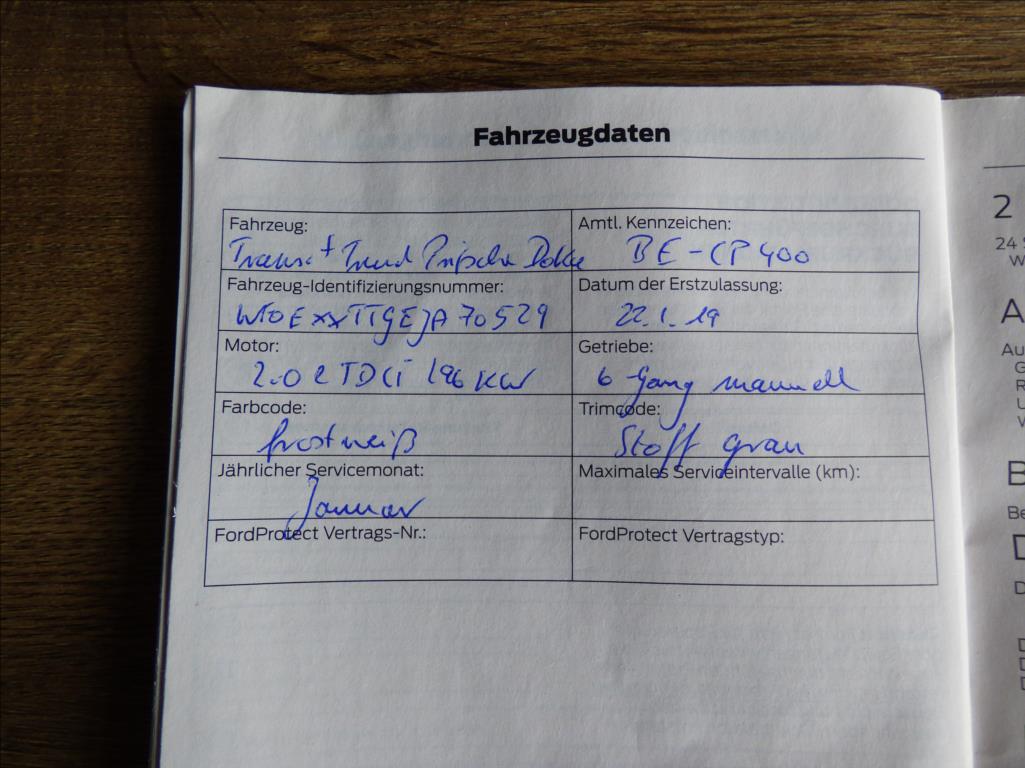 Fahrzeugdaten
Fahrzeug:
Transit Trend Pritsche Doka
Amtl. Kennzeichen:
BE-CP 400
Fahrzeug-Identifizierungsnummer:
WF0EXXTTGEJA70529
Datum der Erstzulassung:
22.1.19
Motor:
2.0 l TDCi / 96 KW
Getriebe:
6 Gang manuell
Farbcode:
frostweiß
Trimcode:
Stoff grau
Jährlicher Servicemonat:
Januar
Maximales Serviceintervalle (km):
FordProtect Vertrags-Nr.:
FordProtect Vertragstyp:
2
24
A
Au
B
Be
D